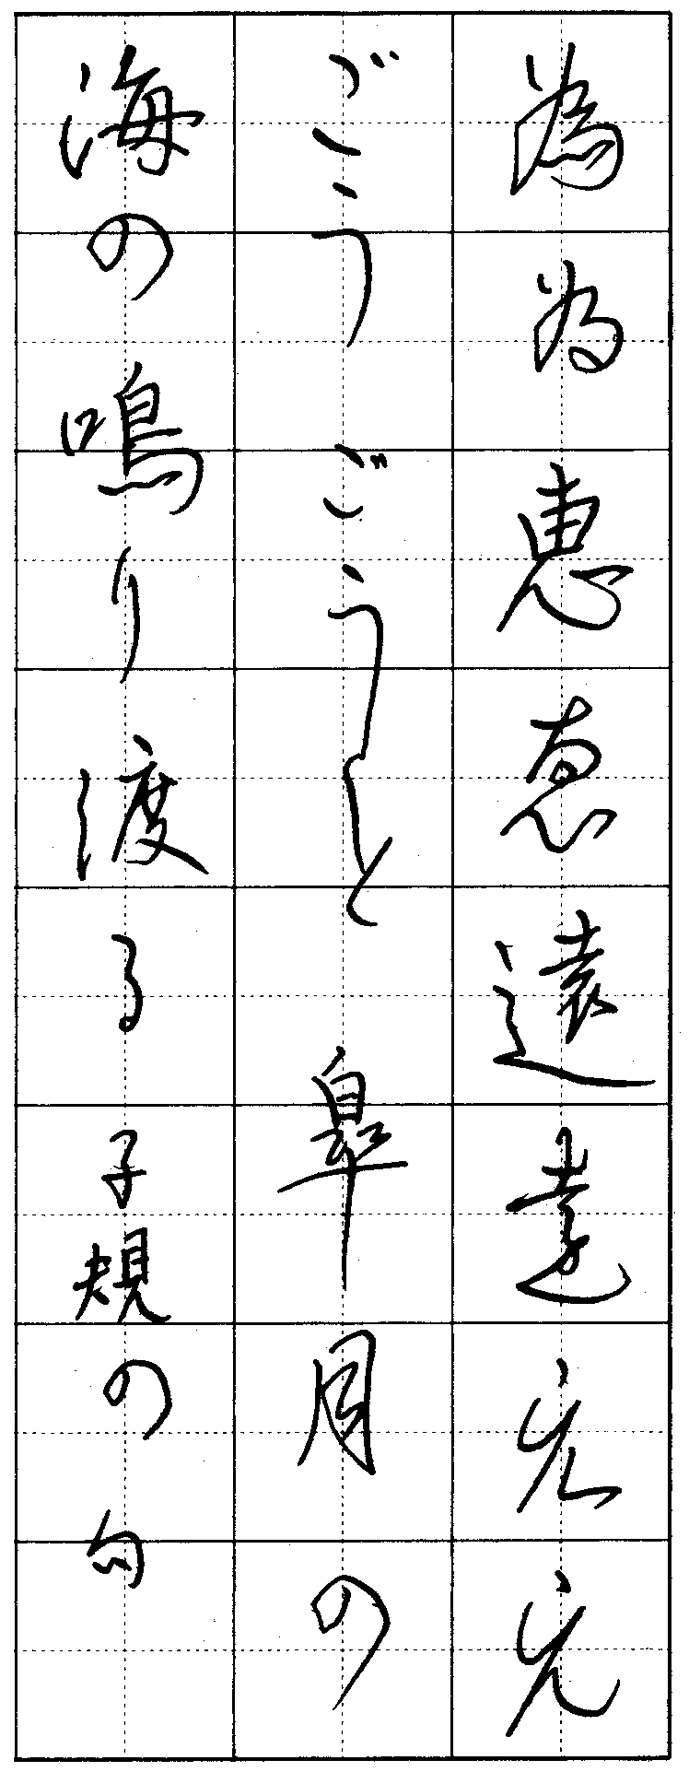 為為恵恵遠遠
ごうごうと皐月の
海の鳴り渡る子規の句